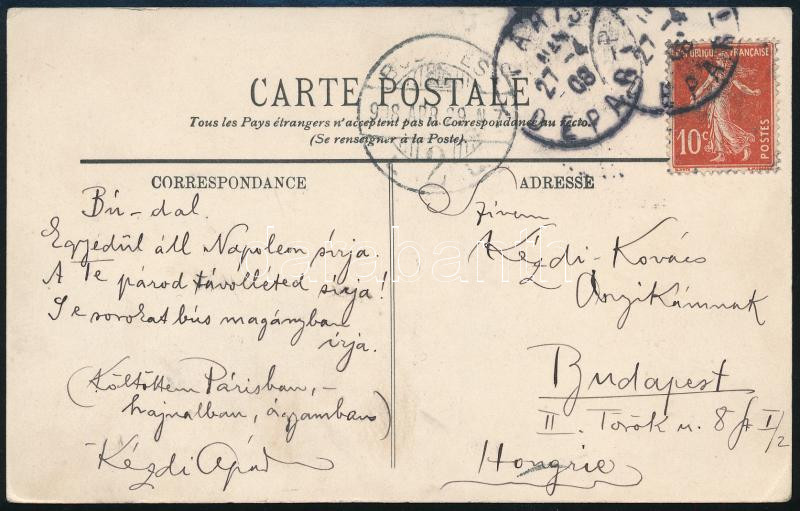 CARTE POSTALE
Tous les Pays étrangers n'acceptent pas la Correspondance au recto.
(Se renseigner à la Poste).
PARIS
27 -4
08
DEPART
27 -4
DEPART
RÉPUBLIQUE FRANÇAISE
10c
POSTES
CORRESPONDANCE
Bú-dal.
Egyedül áll Napoleon sírja.
A Te párod távolléted sírja!
S e sorokat bús magányban
írja.
(Költöttem Párisban, -
hajnalban, ágyamban)
Kézdi Apád
ADRESSE
Szívem
Kézdi-Kovács
Budapest
II. Török u. 8 I/2
Hongrie